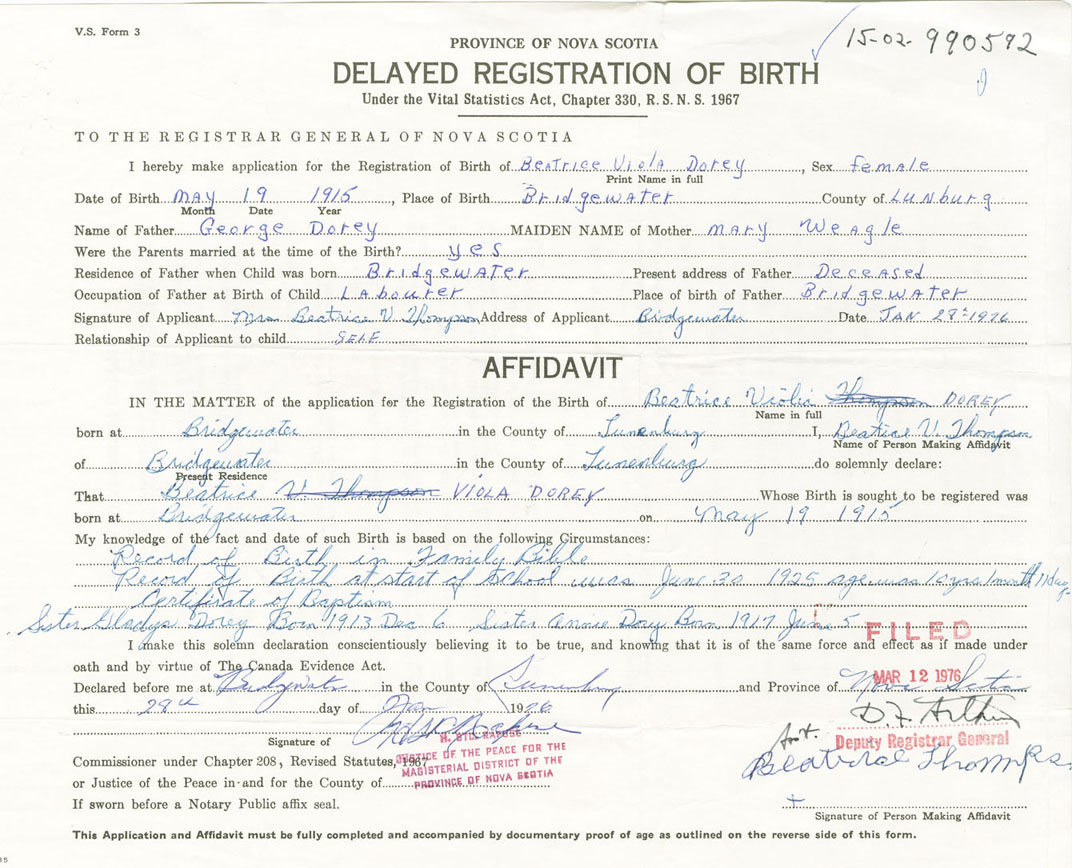 V.S. Form 3
15-02-990592
PROVINCE OF NOVA SCOTIA
DELAYED REGISTRATION OF BIRTH
Under the Vital Statistics Act, Chapter 330, R.S.N.S. 1967
TO THE REGISTRAR GENERAL OF NOVA SCOTIA
I hereby make application for the Registration of Birth of Beatrice Viola Dorey, Sex female
Print Name in full
Date of Birth MAY 19 1915, Place of Birth Bridgewater County of Lunburg
Month Date Year
Name of Father George Dorey MAIDEN NAME of Mother MARY Weagle
Were the Parents married at the time of the Birth? yes
Residence of Father when Child was born Bridgewater Present address of Father Deceased
Occupation of Father at Birth of Child Labourer Place of birth of Father Bridgewater
Signature of Applicant Mrs Beatrice V. Thompson Address of Applicant Bridgewater Date JAN 28th 1976
Relationship of Applicant to child SELF
AFFIDAVIT
IN THE MATTER of the application for the Registration of the Birth of Beatrice Viola Thompson DOREY
Name in full
born at Bridgewater in the County of Lunenburg I, Beatrice V. Thompson
Name of Person Making Affidavit
of Bridgewater in the County of Lunenburg do solemnly declare:
Present Residence
That Beatrice V. Thompson VIOLA DOREY Whose Birth is sought to be registered was
born at Bridgewater on May 19 1915
My knowledge of the fact and date of such Birth is based on the following Circumstances:
Record of Birth in Family Bible
Record of Birth at start of School was June 30 1925 age was 10 yrs 1 month 11 days
Certificate of Baptism
Sister Gladys Dorey Born 1913 Dec 6 Sister Annie Dorey Born 1917 June 5
I make this solemn declaration conscientiously believing it to be true, and knowing that it is of the same force and effect as if made under
FILED
oath and by virtue of The Canada Evidence Act.
MAR 12 1976
Declared before me at Bridgewater in the County of Lunenburg and Province of Nova Scotia
this 28th day of Jan 1976
Asst. Deputy Registrar General
Signature of
Commissioner under Chapter 208, Revised Statutes, 1967
JUSTICE OF THE PEACE FOR THE
MAGISTERIAL DISTRICT OF THE
PROVINCE OF NOVA SCOTIA
or Justice of the Peace in and for the County of
Beatrice Thompson
If sworn before a Notary Public affix seal.
Signature of Person Making Affidavit
This Application and Affidavit must be fully completed and accompanied by documentary proof of age as outlined on the reverse side of this form.